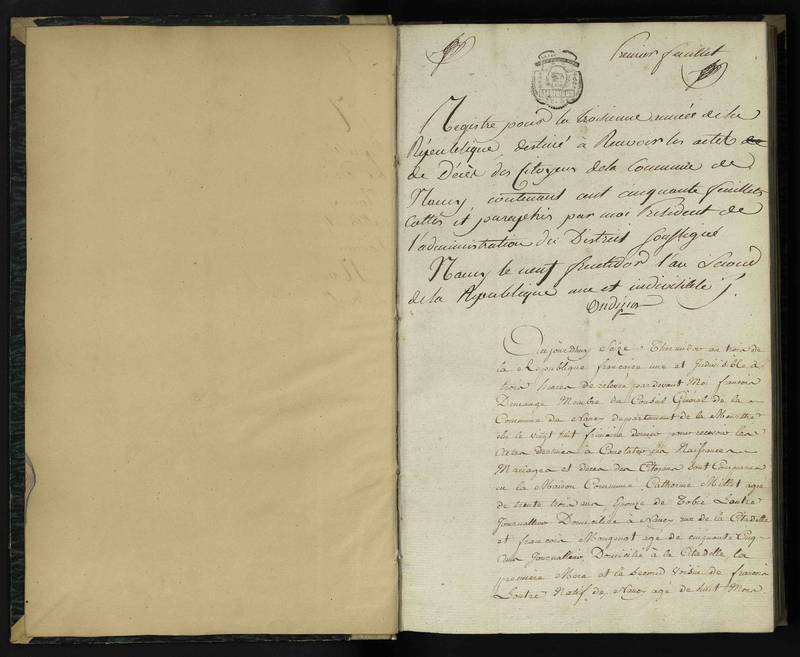 Premier feuillet
Registre pour la troisieme année de la
République, destiné à Recevoir les actes
de Décès des Citoyens de la Commune de
Nancy, contenant cent cinquante feuillets
cottés et paraphés par moi Président de
l'administration du District soussigné
Nancy le neuf fructidor l'an Second
de la République une et indivisible
Aujourdhuy Seize Thermidor an trois de
la Republique francaise une et Indivisible à
trois heures de relevée pardevant Moi francois
Demange Membre du Conseil Général de la
Commune de Nancy departement de la Meurthe
élu le vingt huit frimaire dernier pour recevoir les
Actes destinés à Constater les Naissances
Mariages et décès des Citoyens sont Comparus
en la Maison Commune, Catherine Millet agée
de trente trois ans, Epouze de Lautre
Journallier Domiciliée à Nancy rue de la Citadelle
et francois Mougenot agé de cinquante Cinq
ans Journallier, Domicilié à la Citadelle, la
premiere Mere et le Second Voisin de francois
Lautre Natif de Nancy agé de huit Mois